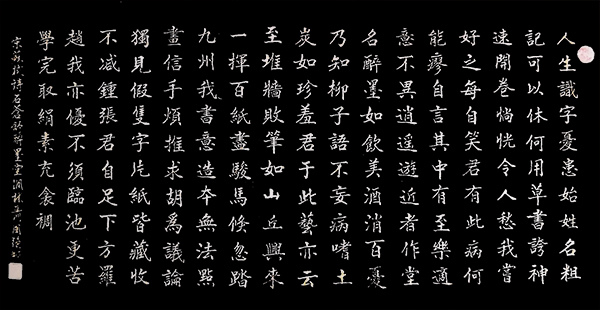 人生識字憂患始姓名粗
記可以休何用草書誇神
速開卷惝恍令人愁我嘗
好之每自笑君有此病何
能瘳自言其中有至樂適
意不異逍遙遊近者作堂
名醉墨如飲美酒消百憂
乃知柳子語不妄病嗜土
炭如珍羞君于此藝亦云
至堆牆敗筆如山丘興來
一揮百紙盡駿馬倏忽踏
九州我書意造本無法點
畫信手煩推求胡爲議論
獨見假隻字片紙皆藏收
不减鍾張君自足下方羅
趙我亦優不須臨池更苦
學完取絹素充衾裯
宋蘇軾詩石蒼舒醉墨堂